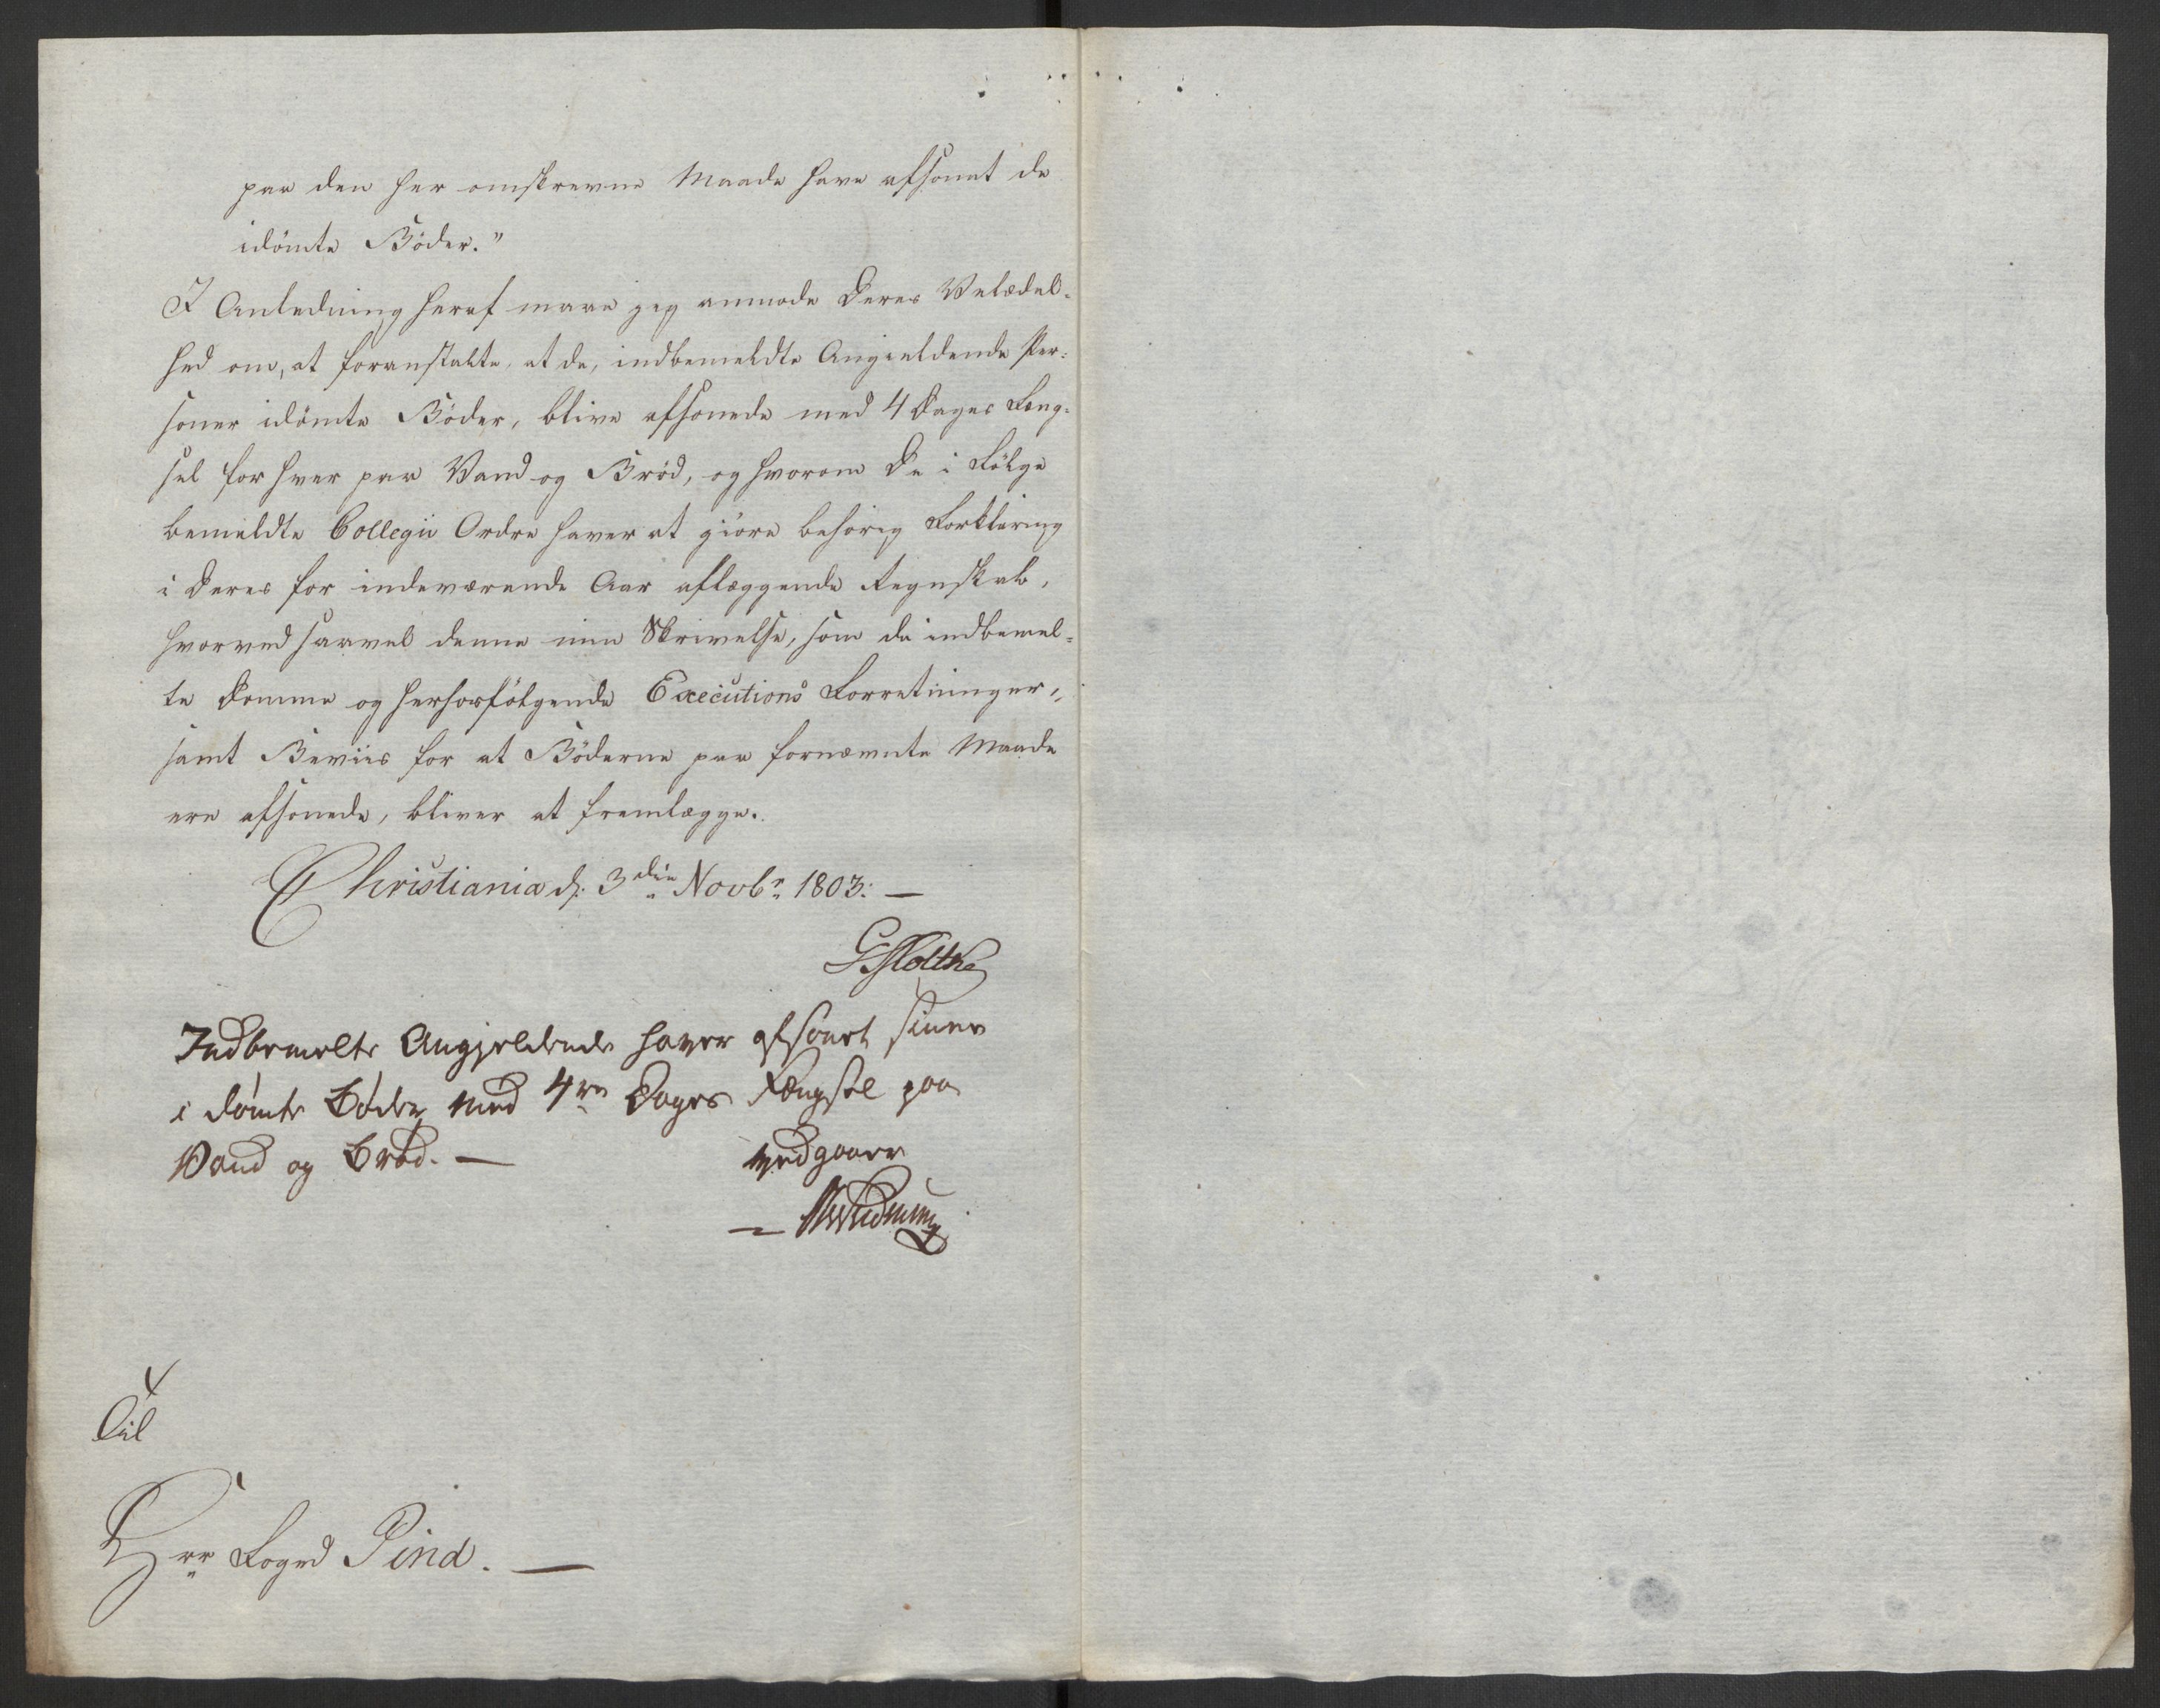 paa den her omskrevne Maade have afsonet de
idömte Böder."
I Anledning heraf maae jeg anmode Deres Velædel-
hed om, at foranstalte, at de, indbemeldte Angieldende Per-
soner idömte Böder, blive afsonede med 4 Dages Fæng-
sel for hver paa Vand og Bröd, og hvorom De i Fölge
bemeldte Collegii Ordre haver at giöre behörig Forklaring
i Deres for indeværende Aar aflæggende Regnskab,
hvorved saavel denne min Skrivelse, som de indbemel-
te Domme og herhosfölgende Executions Forretninger,
samt Beviis for at Böderne paa fornævnte Maade
ere afsonede, bliver at fremlægge.
Christiania d: 3die Novbr 1803. —
G Moltke
Indbemelte Angjeldende haver afsonet sine
i dömte Böder med 4re Dages Fængsel paa
Vand og Bröd. — vedgaaer
Til
Hrr Foged Pind. —